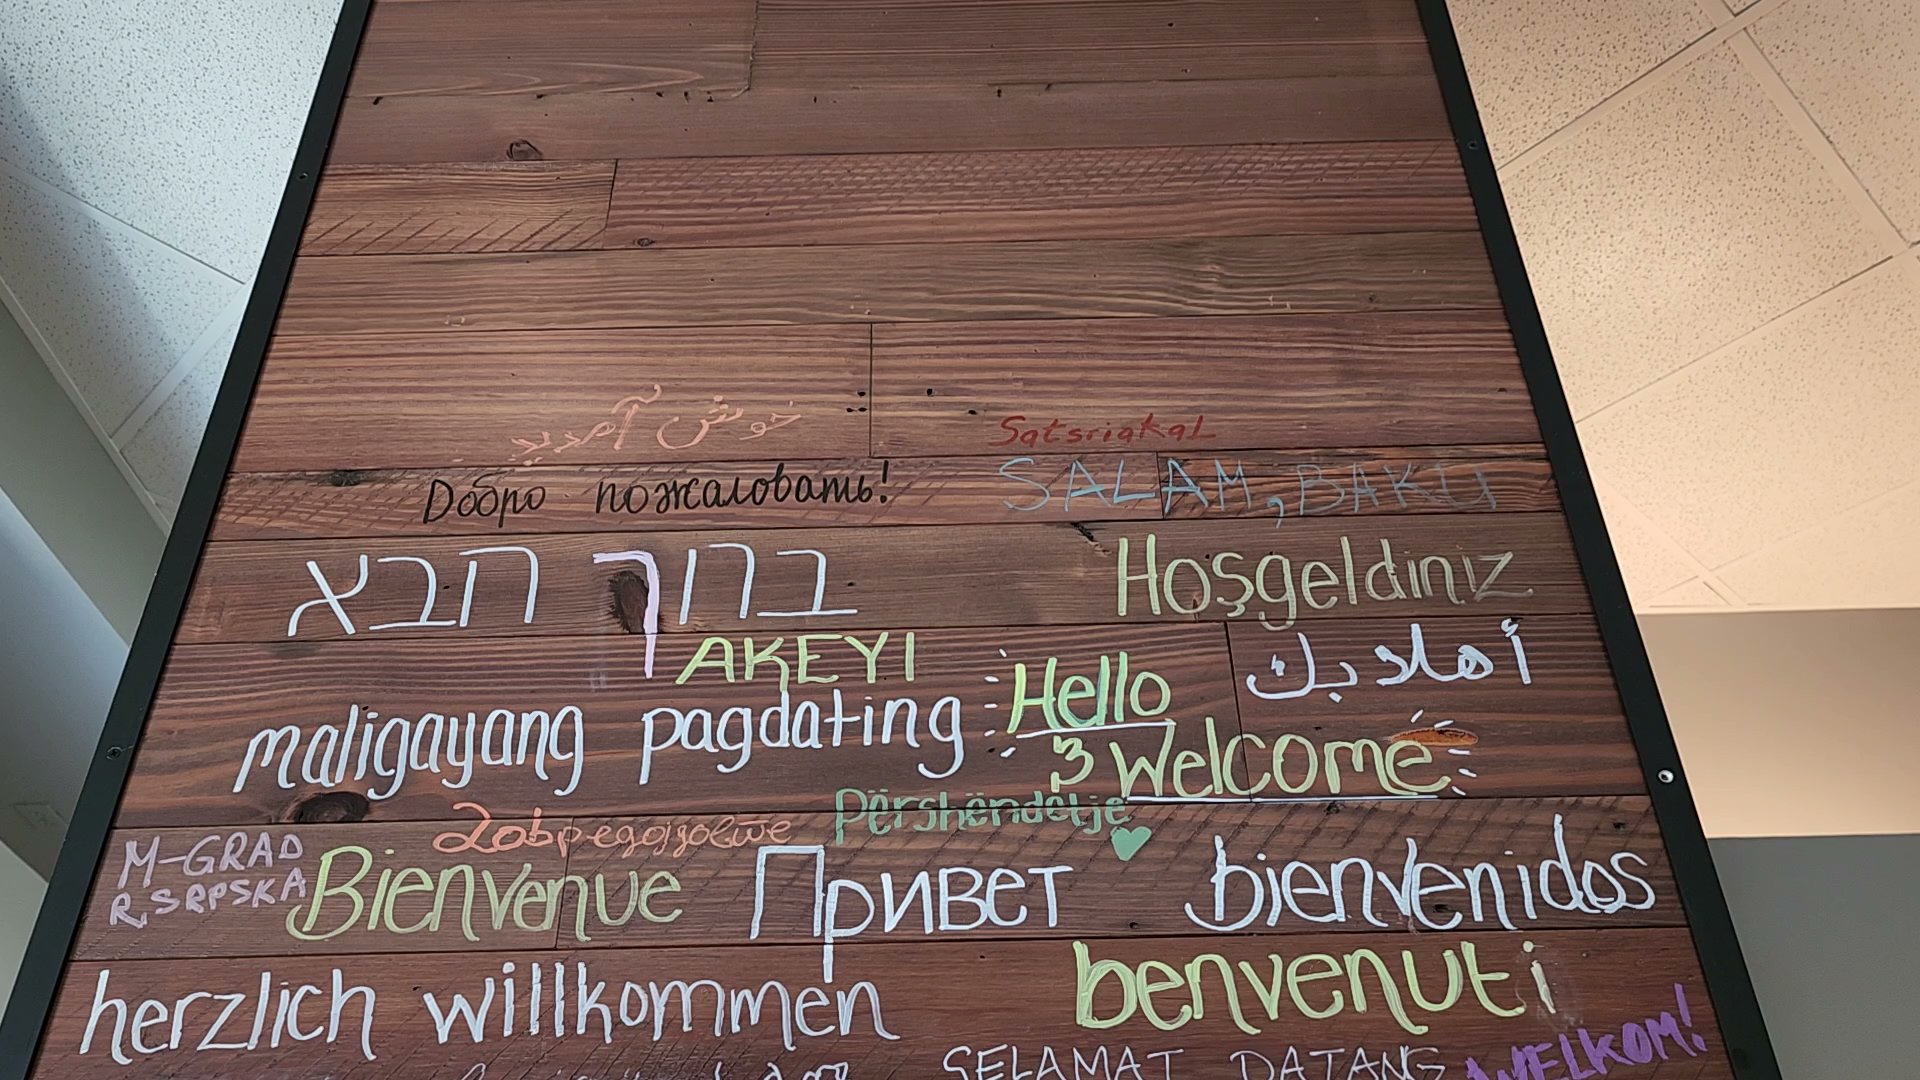 خوش آمدید
Satsriakal
Добро пожаловать!
SALAM, BAKU
ברוך הבא
Hoşgeldiniz
AKEYI
أهلا بك
maligayang pagdating
Hello
& Welcome
Përshëndetje
Добредојдовте
M-GRAD
R. SRPSKA
Bienvenue
Привет
bienvenidos
herzlich willkommen
benvenuti
SELAMAT DATANG
WELKOM!